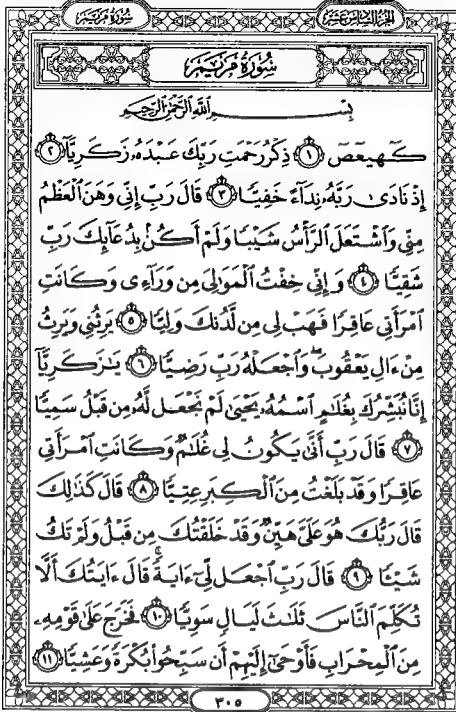 سُورَةُ مَرْيَمَ الجُزْءُ السَّادِسَ عَشَرَ
سُورَةُ مَرْيَمَ
بِسْمِ ٱللَّهِ ٱلرَّحْمَٰنِ ٱلرَّحِيمِ
كٓهيعٓصٓ ١ ذِكْرُ رَحْمَتِ رَبِّكَ عَبْدَهُۥ زَكَرِيَّآ ٢
إِذْ نَادَىٰ رَبَّهُۥ نِدَآءً خَفِيًّا ٣ قَالَ رَبِّ إِنِّى وَهَنَ ٱلْعَظْمُ
مِنِّى وَٱشْتَعَلَ ٱلرَّأْسُ شَيْبًا وَلَمْ أَكُنۢ بِدُعَآئِكَ رَبِّ
شَقِيًّا ٤ وَإِنِّى خِفْتُ ٱلْمَوَٰلِىَ مِن وَرَآءِى وَكَانَتِ
ٱمْرَأَتِى عَاقِرًا فَهَبْ لِى مِن لَّدُنكَ وَلِيًّا ٥ يَرِثُنِى وَيَرِثُ
مِنْ ءَالِ يَعْقُوبَ ۖ وَٱجْعَلْهُ رَبِّ رَضِيًّا ٦ يَٰزَكَرِيَّآ
إِنَّا نُبَشِّرُكَ بِغُلَٰمٍ ٱسْمُهُۥ يَحْيَىٰ لَمْ نَجْعَل لَّهُۥ مِن قَبْلُ سَمِيًّا
٧ قَالَ رَبِّ أَنَّىٰ يَكُونُ لِى غُلَٰمٌ وَكَانَتِ ٱمْرَأَتِى
عَاقِرًا وَقَدْ بَلَغْتُ مِنَ ٱلْكِبَرِ عِتِيًّا ٨ قَالَ كَذَٰلِكَ
قَالَ رَبُّكَ هُوَ عَلَىَّ هَيِّنٌ وَقَدْ خَلَقْتُكَ مِن قَبْلُ وَلَمْ تَكُ
شَيْـًٔا ٩ قَالَ رَبِّ ٱجْعَل لِّىٓ ءَايَةً ۚ قَالَ ءَايَتُكَ أَلَّا
تُكَلِّمَ ٱلنَّاسَ ثَلَٰثَ لَيَالٍ سَوِيًّا ١٠ فَخَرَجَ عَلَىٰ قَوْمِهِۦ
مِنَ ٱلْمِحْرَابِ فَأَوْحَىٰٓ إِلَيْهِمْ أَن سَبِّحُوا۟ بُكْرَةً وَعَشِيًّا ١١
٣٠٥